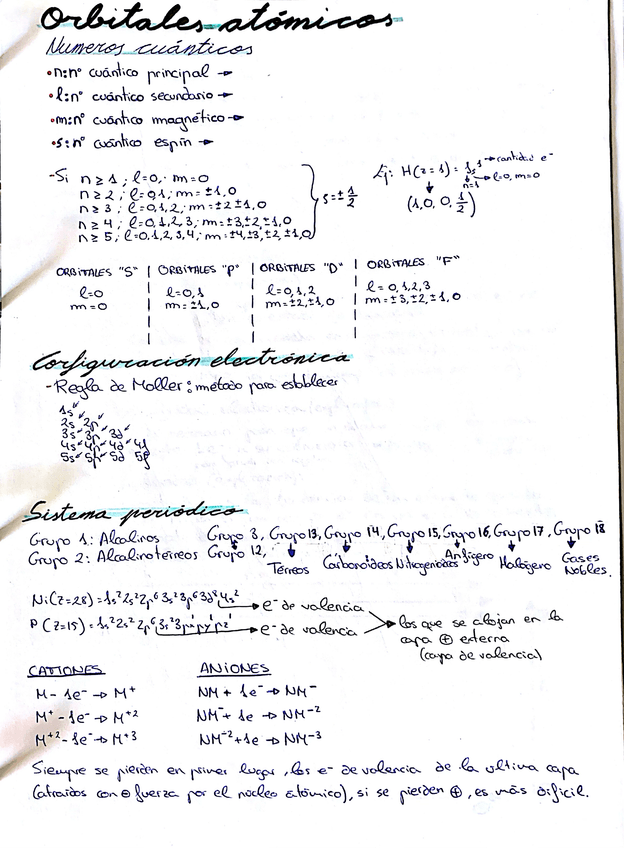 Orbitales atómicos
Numeros cuánticos
• n: nº cuántico principal →
• l: nº cuántico secundario →
• m: nº cuántico magnético →
• s: nº cuántico espín →
- Si n ≥ 1 ; l=0, · m=0
n ≥ 2 ; l=0,1 ; m= ±1,0
n ≥ 3 ; l=0,1,2 ; m= ±2 ±1,0
n ≥ 4 ; l=0,1,2,3 ; m= ±3, ±2, ±1,0
n ≥ 5 ; l=0,1,2,3,4 ; m= ±4, ±3, ±2, ±1,0
s=± 1/2
Ej: H(z=1) = 1s¹ → cantidad e⁻
n=1 → l=0, m=0
(1,0,0, 1/2)
ORBITALES "S" | ORBITALES "P" | ORBITALES "D" | ORBITALES "F"
l=0 | l=0,1 | l=0,1,2 | l=0,1,2,3
m=0 | m=±1,0 | m=±2,±1,0 | m=±3,±2,±1,0
Configuración electrónica
- Regla de Moller: método para establecer
1s
2s 2p
3s 3p 3d
4s 4p 4d 4f
5s 5p 5d 5f
Sistema periódico
Grupo 1: Alcalinos Grupo 3, Grupo 13, Grupo 14, Grupo 15, Grupo 16, Grupo 17, Grupo 18
Grupo 2: Alcalinotérreos Grupo 12, Térreos Carbonóideos Nitrogenoides Anfígero Halógero Gases Nobles.
Ni(Z=28) = 1s² 2s² 2p⁶ 3s² 3p⁶ 3d⁸ 4s² → e⁻ de valencia
P (Z=15) = 1s² 2s² 2p⁶ 3s² 3px¹ py¹ pz¹ → e⁻ de valencia
→ los que se alojan en la
capa ⊕ externa
(capa de valencia)
CATIONES ANIONES
M - 1e⁻ → M⁺ NM + 1e⁻ → NM⁻
M⁺ - 1e⁻ → M⁺² NM⁻ + 1e → NM⁻²
M⁺² - 1e⁻ → M⁺³ NM⁻² + 1e → NM⁻³
Siempre se pierden en primer lugar, los e⁻ de valencia de la ultima capa
(atraídos con ⊖ fuerza por el núcleo atómico), si se pierden ⊕, es más dificil.